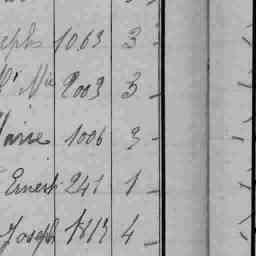 eph 1063 3 -
Me 2003 3 -
Marie 1006 3 -
Ernest 241 1 -
Joseph 1813 4 -